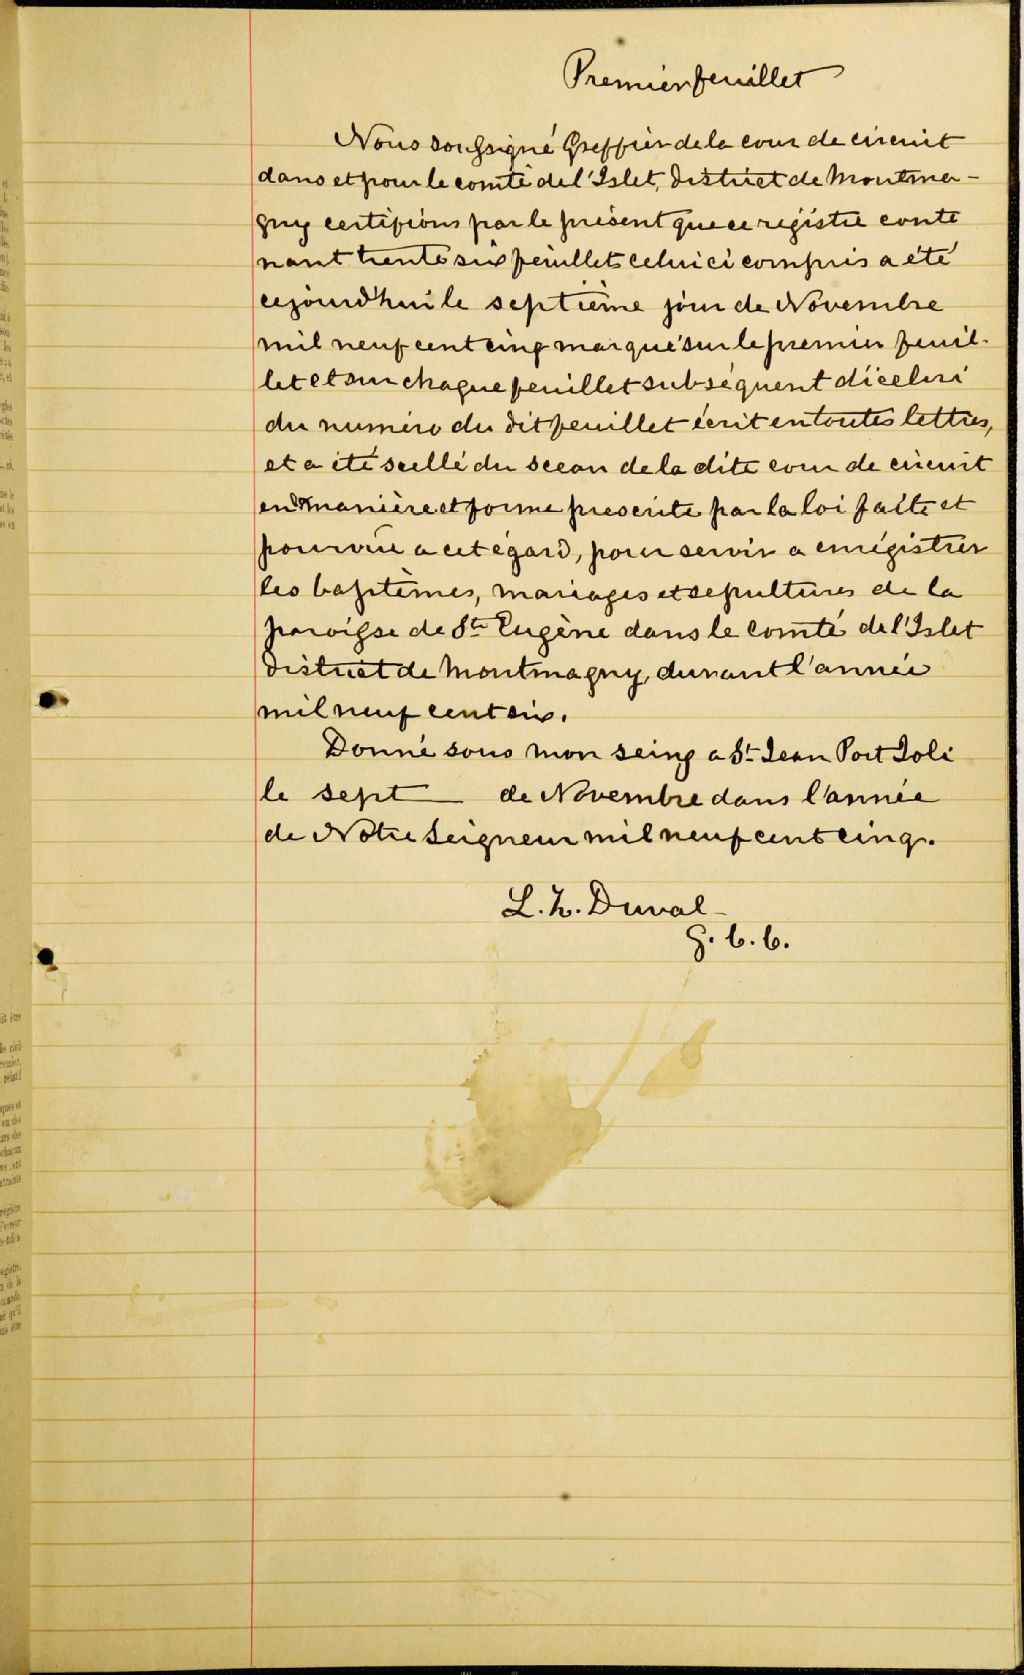 Premier feuillet
Nous soussigné Greffier de la cour de circuit
dans et pour le comté de l'Islet, district de Montma-
gny certifions par le présent que ce régistre conte
nant trente six feuillets celui ci compris a été
cejourd'hui le septième jour de Novembre
mil neuf cent cinq marqué sur le premier feuil-
let et sur chaque feuillet subséquent d'icelui
du numéro du dit feuillet écrit en toutes lettres,
et a été scellé du sceau de la dite cour de circuit
en manière et forme prescrite par la loi faite et
pourvue a cet égard, pour servir a enrégistrer
les baptêmes, mariages et sepultures de la
paroisse de St. Eugène dans le comté de l'Islet
district de Montmagny, durant l'année
mil neuf cent six.
Donné sous mon seing a St. Jean Port Joli
le sept de Novembre dans l'année
de Notre Seigneur mil neuf cent cinq.
L. Z. Duval
G. C. C.